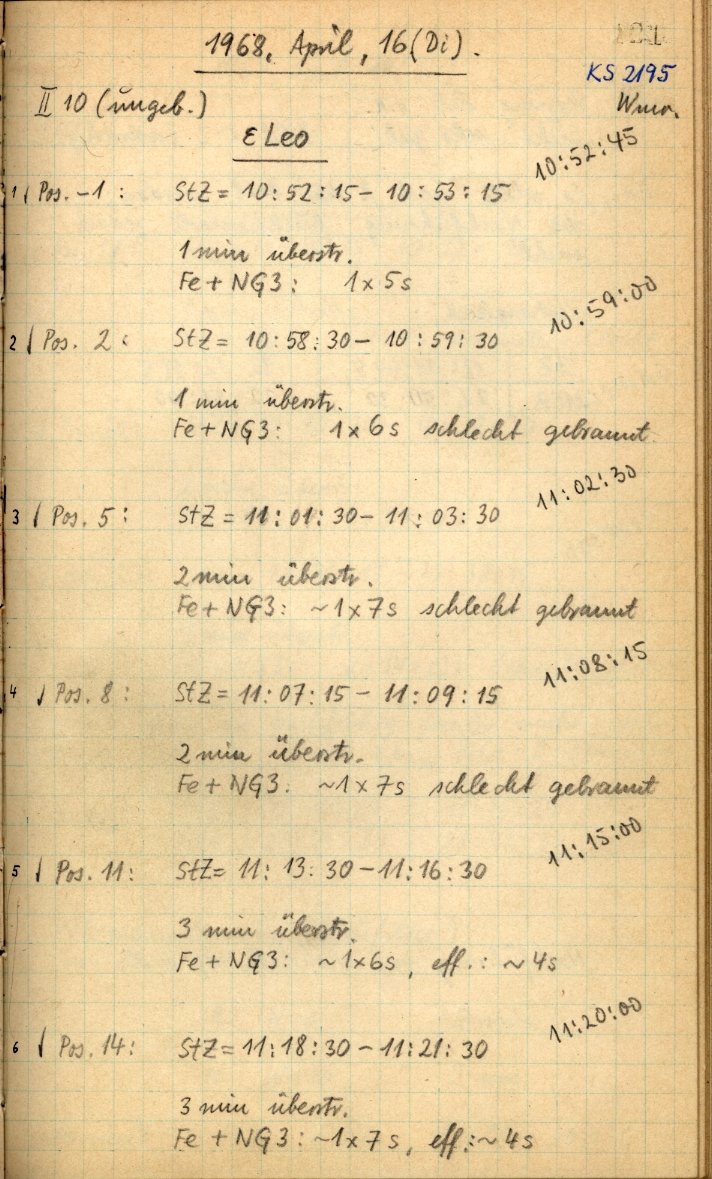 1968, April, 16 (Di).
KS 2195
II 10 (ungeb.)
ε Leo
10:52:45
1 √ Pos. -1: StZ = 10:52:15 - 10:53:15
1 min überstr.
Fe + NG3: 1 x 5 s
10:59:00
2 √ Pos. 2: StZ = 10:58:30 - 10:59:30
1 min überstr.
Fe + NG3: 1 x 6 s schlecht gebrannt
11:02:30
3 √ Pos. 5: StZ = 11:01:30 - 11:03:30
2 min überstr.
Fe + NG3: ~1 x 7 s schlecht gebrannt
11:08:15
4 √ Pos. 8: StZ = 11:07:15 - 11:09:15
2 min überstr.
Fe + NG3: ~1 x 7 s schlecht gebrannt
11:15:00
5 √ Pos. 11: StZ = 11:13:30 - 11:16:30
3 min überstr.
Fe + NG3: ~1 x 6 s, eff.: ~4 s
11:20:00
6 √ Pos. 14: StZ = 11:18:30 - 11:21:30
3 min überstr.
Fe + NG3: ~1 x 7 s, eff.: ~4 s